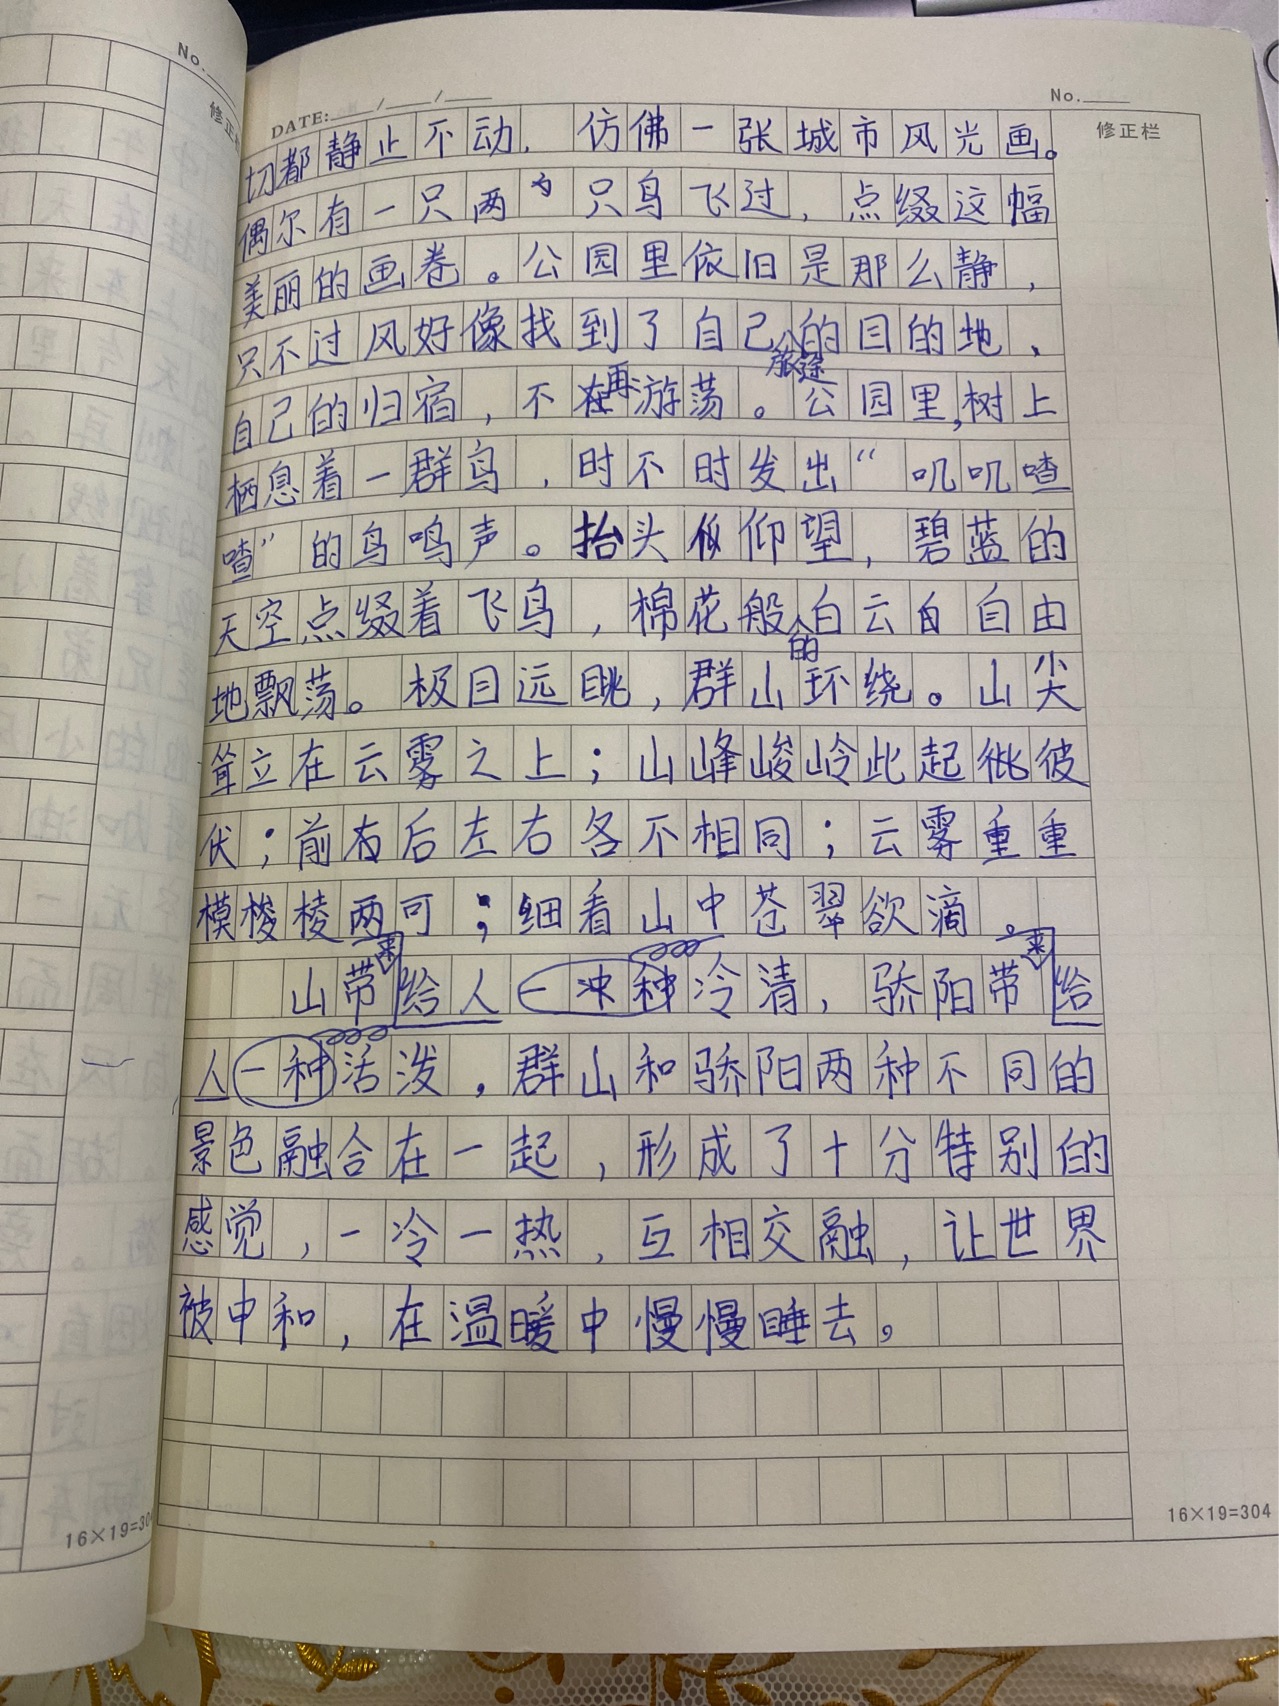 No.
修正栏
DATE: / /
No.
修正栏
切都静止不动，仿佛一张城市风光画。
偶尔有一只两只鸟飞过，点缀这幅
美丽的画卷。公园里依旧是那么静，
只不过风好像找到了自己旅途的目的地，
自己的归宿，不再游荡。公园里,树上
栖息着一群鸟，时不时发出“叽叽喳
喳”的鸟鸣声。抬头仰望，碧蓝的
天空点缀着飞鸟，棉花般的白云自由
地飘荡。极目远眺，群山环绕。山尖
耸立在云雾之上；山峰峻岭此起彼
伏；前后左右各不相同；云雾重重
模棱两可；细看山中苍翠欲滴。
山带来给人一种冷清，骄阳带来给
人一种活泼，群山和骄阳两种不同的
景色融合在一起，形成了十分特别的
感觉，一冷一热，互相交融，让世界
被中和，在温暖中慢慢睡去。
16×19=304
16×19=30